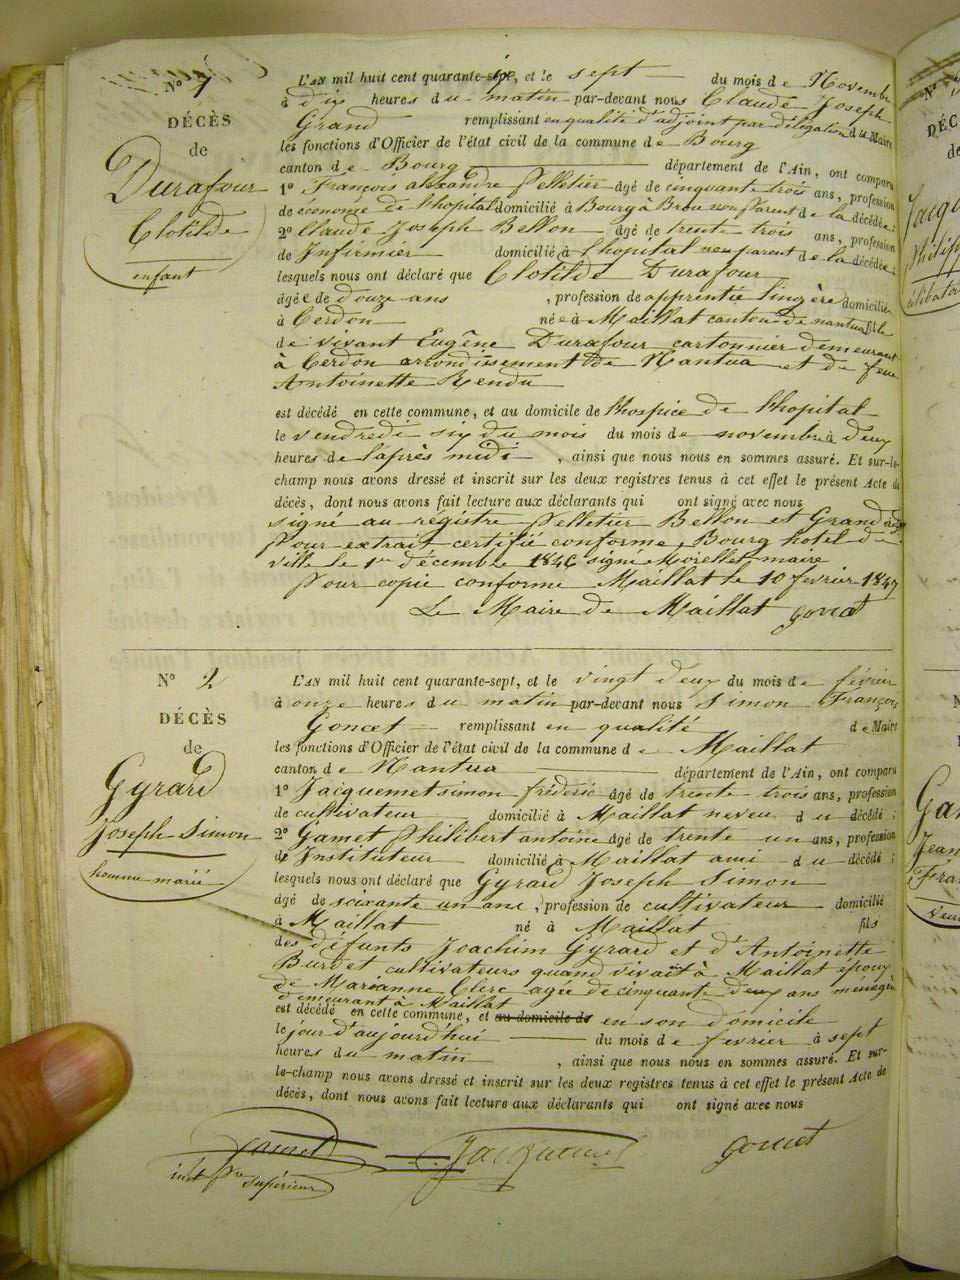 N° 1
DÉCÈS
de
Durafour
Clotilde
enfant
L'AN mil huit cent quarante-six, et le sept du mois de Novembre
à dix heures du matin par-devant nous Claude Joseph
Grand remplissant en qualité d'adjoint par délégation de Maire
les fonctions d'Officier de l'état civil de la commune de Bourg
canton de Bourg département de l'Ain, ont comparu
1° François alexandre Pelletier âgé de cinquante trois ans, profession
de économe de l'hopital domicilié à Bourg à Brou non parent de la décédée ;
2° Claude Joseph Bellon âgé de trente trois ans, profession
de Infirmier domicilié à l'hopital non parent de la décédée ;
lesquels nous ont déclaré que Clotilde Durafour
âgée de douze ans , profession de apprentie lingère domiciliée
à Cerdon née à Maillat canton de nantua fille
de vivant Eugêne Durafour cartonnier demeurant
à Cerdon arrondissement de Nantua et de feue
Antoinette Rendu
est décédé en cette commune, et au domicile de l'hospice de l'hopital
le vendredi six du mois du mois de novembre à deux
heures de l'après midi , ainsi que nous nous en sommes assuré. Et sur-le-
champ nous avons dressé et inscrit sur les deux registres tenus à cet effet le présent Acte de
décès, dont nous avons fait lecture aux déclarants qui ont signé avec nous
signé au régistre Pelletier Bellon et Grand adj
Pour extrait certifié conforme Bourg hotel de
ville le 1er décembre 1846 signé Morellet maire
Pour copie conforme Maillat le 10 fevrier 1847
Le Maire de Maillat Goncet
N° 2
DÉCÈS
de
Gyrard
Joseph Simon
homme marié
L'AN mil huit cent quarante-sept, et le vingt deux du mois de février
à onze heures du matin par-devant nous Simon François
Goncet remplissant en qualité de Maire
les fonctions d'Officier de l'état civil de la commune de Maillat
canton de Nantua département de l'Ain, ont comparu
1° Jacquemet simon fréderic âgé de trente trois ans, profession
de cultivateur domicilié à Maillat neveu du décédé ;
2° Gamet Philibert antoine âgé de trente un ans, profession
de Instituteur domicilié à Maillat ami du décédé ;
lesquels nous ont déclaré que Gyrard Joseph Simon
âgé de soixante un ans , profession de cultivateur domicilié
à Maillat né à Maillat fils
des défunts Joachim Gyrard et d'Antoinette
Burdet cultivateurs quand vivait à Maillat époux
de Marianne Clerc agée de cinquante deux ans ménagère
demeurant à Maillat
est décédé en cette commune, et au domicile de en son domicile
le jour d'aujourd'hui du mois de fevrier à sept
heures du matin , ainsi que nous nous en sommes assuré. Et sur-
le-champ nous avons dressé et inscrit sur les deux registres tenus à cet effet le présent Acte de
décès, dont nous avons fait lecture aux déclarants qui ont signé avec nous
Gamet Jacquemet Goncet
inst pre supérieur